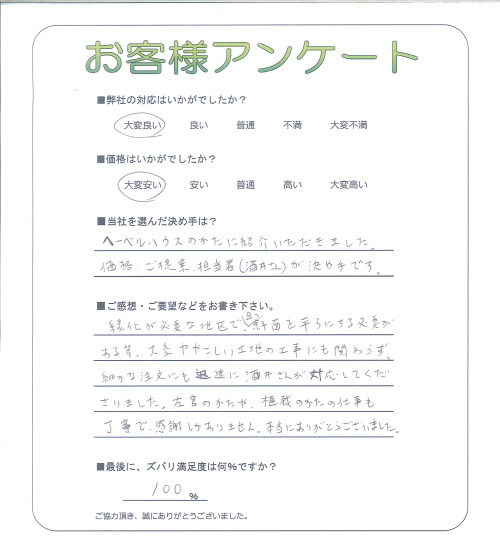 お客様アンケート
■弊社の対応はいかがでしたか？
大変良い 良い 普通 不満 大変不満
■価格はいかがでしたか？
大変安い 安い 普通 高い 大変高い
■当社を選んだ決め手は？
ヘーベルハウスのかたに紹介いただきました。
価格、ご提案、担当者(酒井さん)が決め手です。
■ご感想・ご要望などをお書き下さい。
緑化が必要な地区で、斜面を平らにする必要が
ある等、大変ややこしい土地の工事にも関わらず、
細かな注文にも迅速に酒井さんが対応してくだ
さりました。左官のかたや、植栽のかたの仕事も
丁寧で、感謝しかありません。本当にありがとうございました。
■最後に、ズバリ満足度は何%ですか？
100 %
ご協力頂き、誠にありがとうございました。